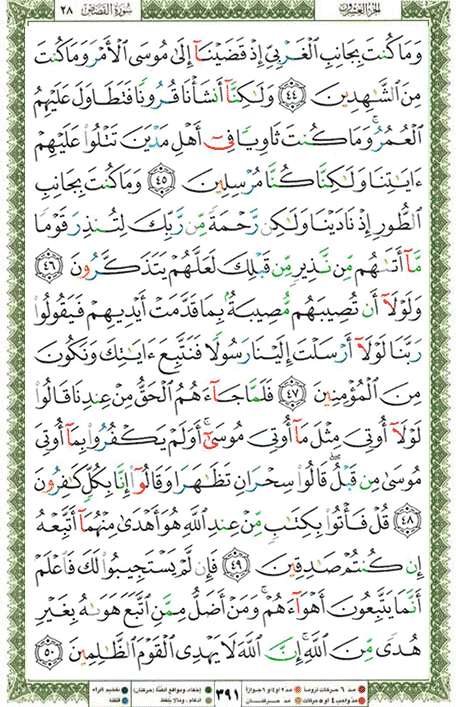 الجزء العشرون سورة القصص ٢٨
وَمَا كُنتَ بِجَانِبِ ٱلْغَرْبِىِّ إِذْ قَضَيْنَآ إِلَىٰ مُوسَى ٱلْأَمْرَ وَمَا كُنتَ
مِنَ ٱلشَّٰهِدِينَ ٤٤ وَلَٰكِنَّآ أَنشَأْنَا قُرُونًا فَتَطَاوَلَ عَلَيْهِمُ
ٱلْعُمُرُ ۚ وَمَا كُنتَ ثَاوِيًا فِىٓ أَهْلِ مَدْيَنَ تَتْلُوا۟ عَلَيْهِمْ
ءَايَٰتِنَا وَلَٰكِنَّا كُنَّا مُرْسِلِينَ ٤٥ وَمَا كُنتَ بِجَانِبِ
ٱلطُّورِ إِذْ نَادَيْنَا وَلَٰكِن رَّحْمَةً مِّن رَّبِّكَ لِتُنذِرَ قَوْمًا
مَّآ أَتَىٰهُم مِّن نَّذِيرٍ مِّن قَبْلِكَ لَعَلَّهُمْ يَتَذَكَّرُونَ ٤٦
وَلَوْلَآ أَن تُصِيبَهُم مُّصِيبَةٌۢ بِمَا قَدَّمَتْ أَيْدِيهِمْ فَيَقُولُوا۟
رَبَّنَا لَوْلَآ أَرْسَلْتَ إِلَيْنَا رَسُولًا فَنَتَّبِعَ ءَايَٰتِكَ وَنَكُونَ
مِنَ ٱلْمُؤْمِنِينَ ٤٧ فَلَمَّا جَآءَهُمُ ٱلْحَقُّ مِنْ عِندِنَا قَالُوا۟
لَوْلَآ أُوتِىَ مِثْلَ مَآ أُوتِىَ مُوسَىٰٓ ۚ أَوَلَمْ يَكْفُرُوا۟ بِمَآ أُوتِىَ
مُوسَىٰ مِن قَبْلُ ۖ قَالُوا۟ سِحْرَانِ تَظَٰهَرَا وَقَالُوٓا۟ إِنَّا بِكُلٍّ كَٰفِرُونَ
٤٨ قُلْ فَأْتُوا۟ بِكِتَٰبٍ مِّنْ عِندِ ٱللَّهِ هُوَ أَهْدَىٰ مِنْهُمَآ أَتَّبِعْهُ
إِن كُنتُمْ صَٰدِقِينَ ٤٩ فَإِن لَّمْ يَسْتَجِيبُوا۟ لَكَ فَٱعْلَمْ
أَنَّمَا يَتَّبِعُونَ أَهْوَآءَهُمْ ۚ وَمَنْ أَضَلُّ مِمَّنِ ٱتَّبَعَ هَوَىٰهُ بِغَيْرِ
هُدًى مِّنَ ٱللَّهِ ۚ إِنَّ ٱللَّهَ لَا يَهْدِى ٱلْقَوْمَ ٱلظَّٰلِمِينَ ٥٠
مد ٦ حركات لزوماً مد ٢ أو ٤ أو ٦ جوازاً ٣٩١ إخفاء، ومواقع الغنة (حركتان) تفخيم الراء
مد واجب ٤ أو ٥ حركات مد حركتان إدغام، وما لا يُلفظ قلقلة